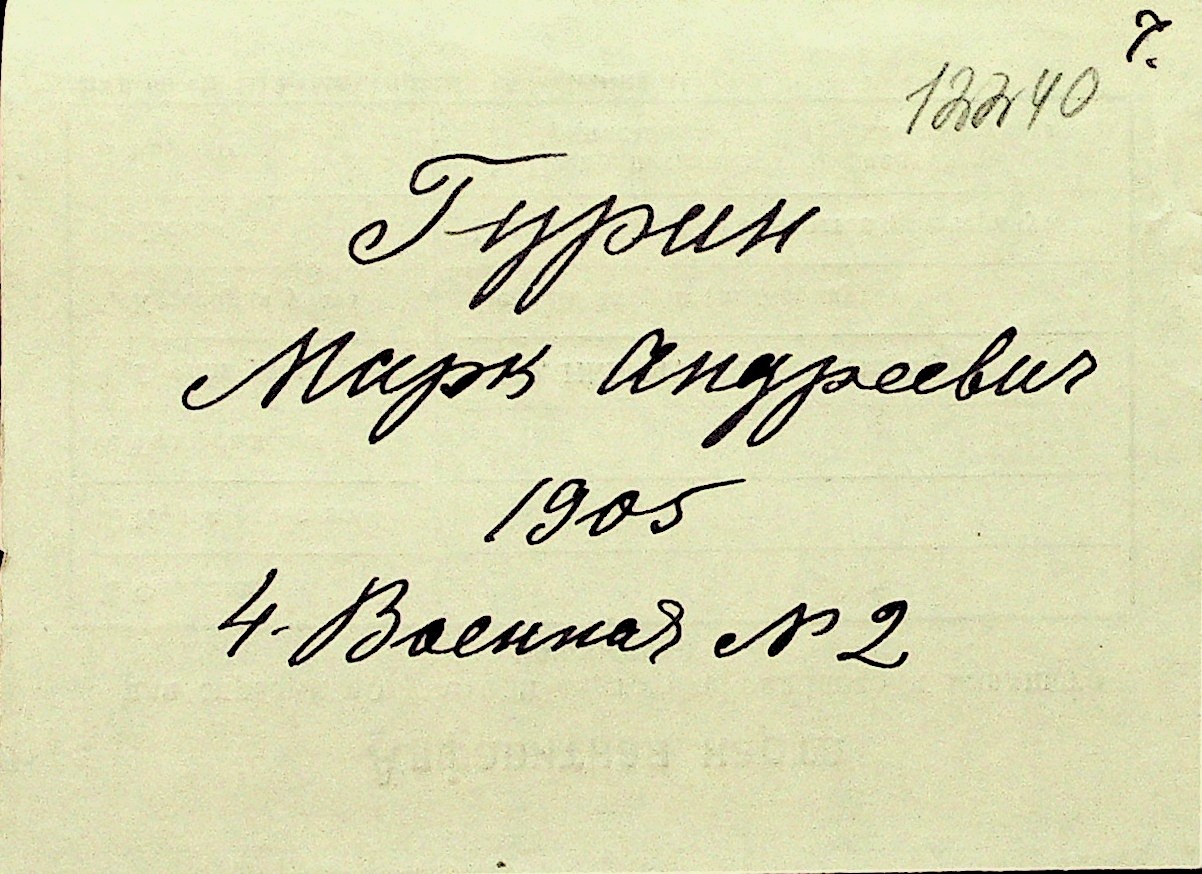 7.
12240
Гурин
Марк Андреевич
1905
4-Военная № 2